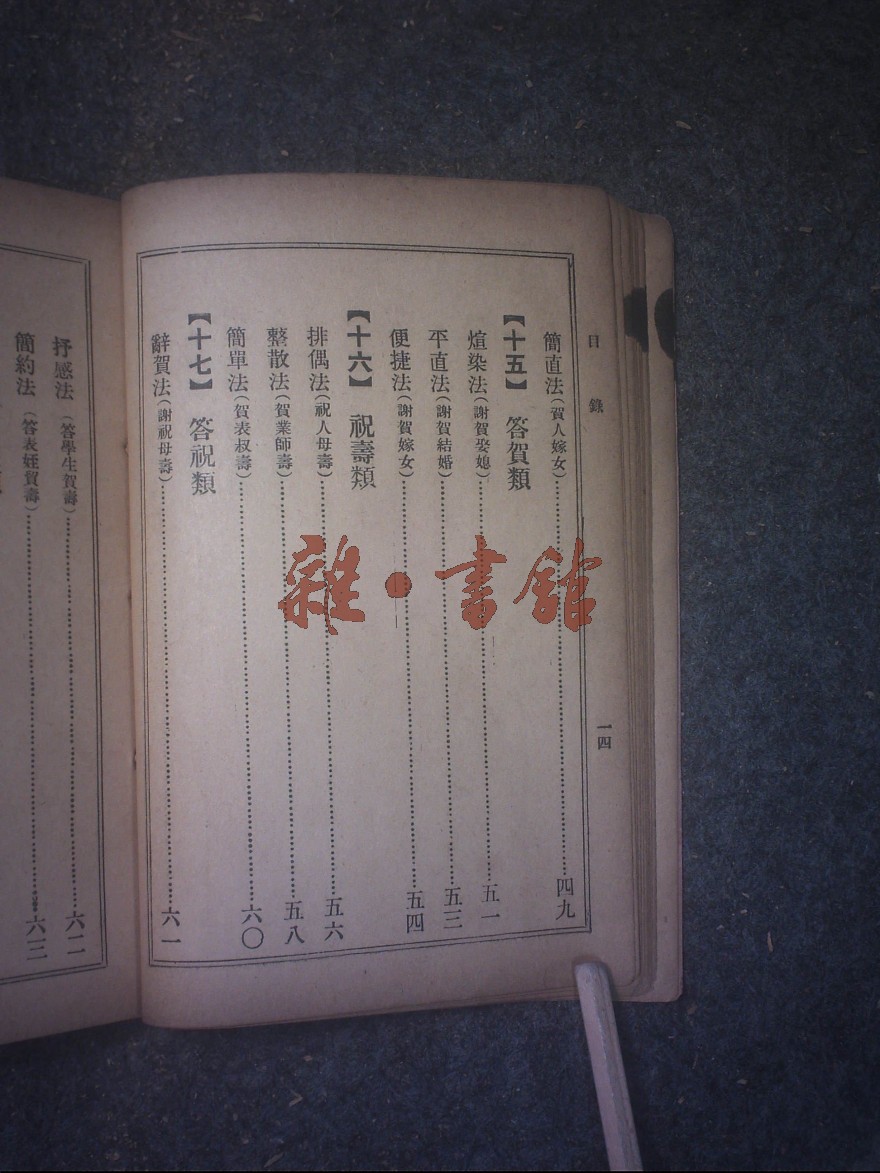 目錄
一四
簡直法（賀人嫁女）四九
【十五】 答賀類
煊染法（謝賀娶媳）五一
平直法（謝賀結婚）五三
便捷法（謝賀嫁女）五四
【十六】 祝壽類
排偶法（祝人母壽）五六
整散法（賀業師壽）五八
簡單法（賀表叔壽）六〇
【十七】 答祝類
辭賀法（謝祝母壽）六一
抒感法（答學生賀壽）六二
簡約法（答表姪賀壽）六三
雜·書館